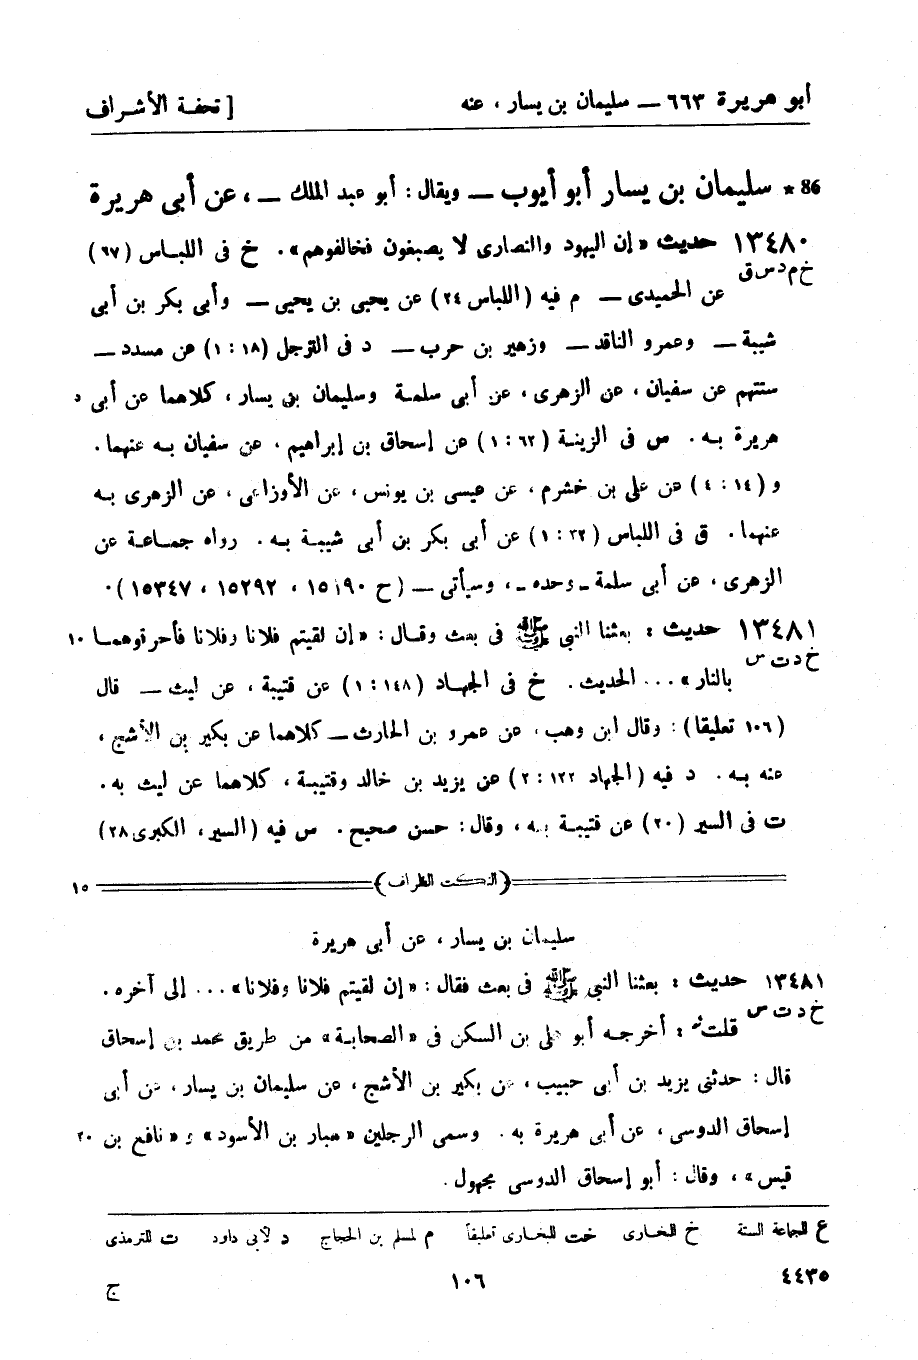 أبو هريرة ٦٦٣ — سليمان بن يسار ، عنه [ تحفة الأشراف
86 * سليمان بن يسار أبو أيوب — ويقال : أبو عبد الملك — ، عن أبى هريرة
١٣٤٨٠ حديث « إن اليهود والنصارى لا يصبغون فخالفوهم » . خ فى اللباس (٦٧)
خ م د س ق
عن الحميدى — م فيه (اللباس ٢٤) عن يحيى بن يحيى — وأبى بكر بن أبى
شيبة — وعمرو الناقد — وزهير بن حرب — د فى الترجل (١٨ : ١) عن مسدد —
ستتهم عن سفيان ، عن الزهرى ، عن أبى سلمة وسليمان بن يسار ، كلاهما عن أبى د
هريرة به . س فى الزينة (٦٢ : ١) عن إسحاق بن إبراهيم ، عن سفيان به عنهما .
و (١٤ : ٤) عن على بن خشرم ، عن عيسى بن يونس ، عن الأوزاعى ، عن الزهرى به
عنهما . ق فى اللباس (٣٢ : ١) عن أبى بكر بن أبى شيبة به . رواه جماعة عن
الزهرى ، عن أبى سلمة ـ وحده ـ ، وسيأتى — (ح ١٥١٩٠ ، ١٥٢٩٢ ، ١٥٣٤٧) ·
١٣٤٨١ حديث : بعثنا النبى ﷺ فى بعث وقال : « إن لقيتم فلانا وفلانا فأحرقوهما ١٠
خ د ت س
بالنار » ... الحديث . خ فى الجهاد (١٤٨ : ١) عن قتيبة ، عن ليث — قال
(١٠٦ تعليقا) : وقال ابن وهب ، عن عمرو بن الحارث — كلاهما عن بكير بن الأشج ،
عنه به . د فيه (الجهاد ١٢٢ : ٢) عن يزيد بن خالد وقتيبة ، كلاهما عن ليث به .
ت فى السير (٢٠) عن قتيبة به ، وقال : حسن صحيح . س فيه (السير ، الكبرى ٢٨)
(النكت الظراف) ١٥
سليمان بن يسار ، عن أبى هريرة
١٣٤٨١ حديث : بعثنا النبى ﷺ فى بعث فقال : « إن لقيتم فلانا وفلانا » ... إلى آخره .
خ د ت س
قلت : أخرجه أبو على بن السكن فى « الصحابة » من طريق محمد بن إسحاق
قال : حدثنى يزيد بن أبى حبيب ، عن بكير بن الأشج ، عن سليمان بن يسار ، عن أبى
إسحاق الدوسى ، عن أبى هريرة به . وسمى الرجلين « هبار بن الأسود » و « نافع بن ٢٠
قيس » ، وقال : أبو إسحاق الدوسى مجهول .
ع للجماعة الستة خ للبخارى خت للبخارى تعليقاً م لمسلم بن الحجاج د لأبى داود ت للترمذى
٤٤٣٥ ١٠٦ ج